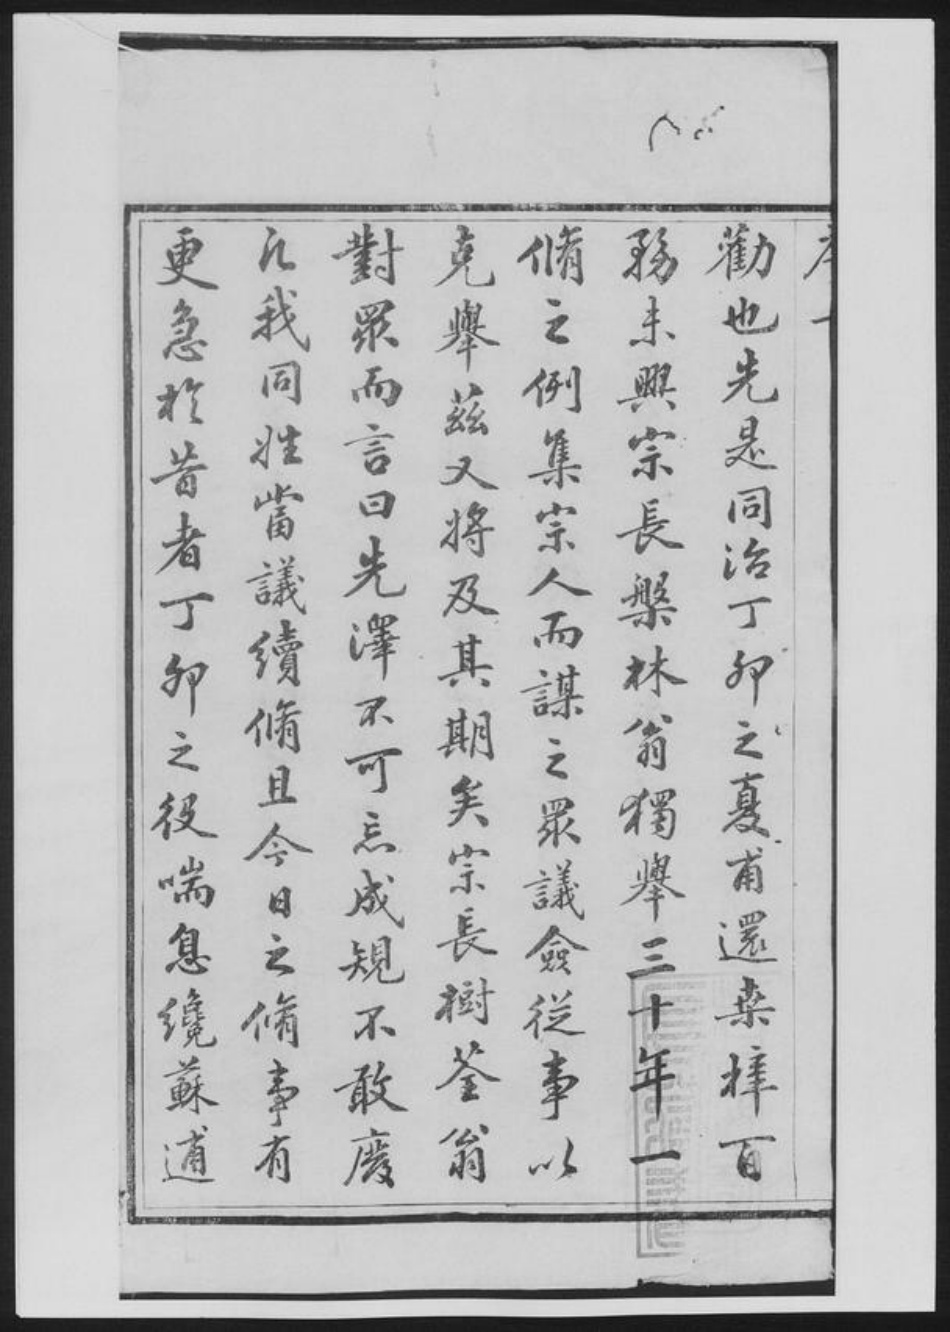 勸也先是同治丁卯之憂甫還桑梓百
務未興宗長槃林翁獨舉三十年一
脩之例集宗人而謀之眾議僉從事以
克舉茲又將及其期矣宗長樹荃翁
對眾而言曰先澤不可忘成規不敢廢
凡我同姓當議續脩且今日之脩事有
更急於昔者丁卯之役喘息纔蘇逋